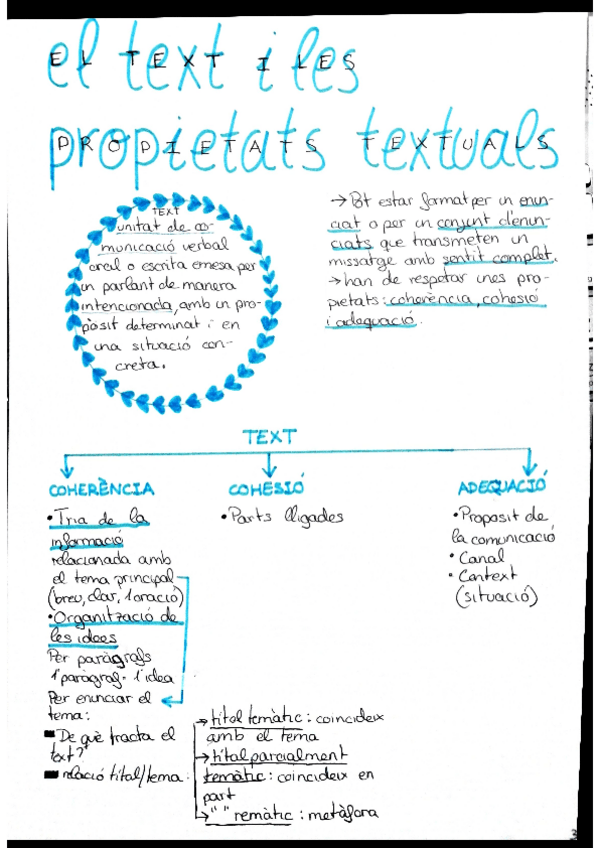 el text i les
EL TEXT I LES
propietats textuals
PROPIETATS TEXTUALS
TEXT
unitat de co-
municació verbal
oral o escrita emesa per
un parlant de manera
intencionada, amb un pro-
pòsit determinat i en
una situació con-
creta.
→ Pot estar format per un enun-
ciat o per un conjunt d'enun-
ciats que transmeten un
missatge amb sentit complet.
→ han de respetar unes pro-
pietats: coherència, cohesió
i adequació.
TEXT
COHERÈNCIA
• Tria de la
informació
relacionada amb
el tema principal
(breu, clar, 1 oració)
• Organització de
les idees
Per paràgrafs
1 paràgraf - 1 idea
Per enunciar el
tema:
De què tracta el
text?
relació títol/tema:
→ títol temàtic: coincideix
amb el tema
→ títol parcialment
temàtic: coincideix en
part
→ " " remàtic: metàfora
COHESIÓ
• Parts lligades
ADEQUACIÓ
• Proposit de
la comunicació
• Canal
• Context
(situació)